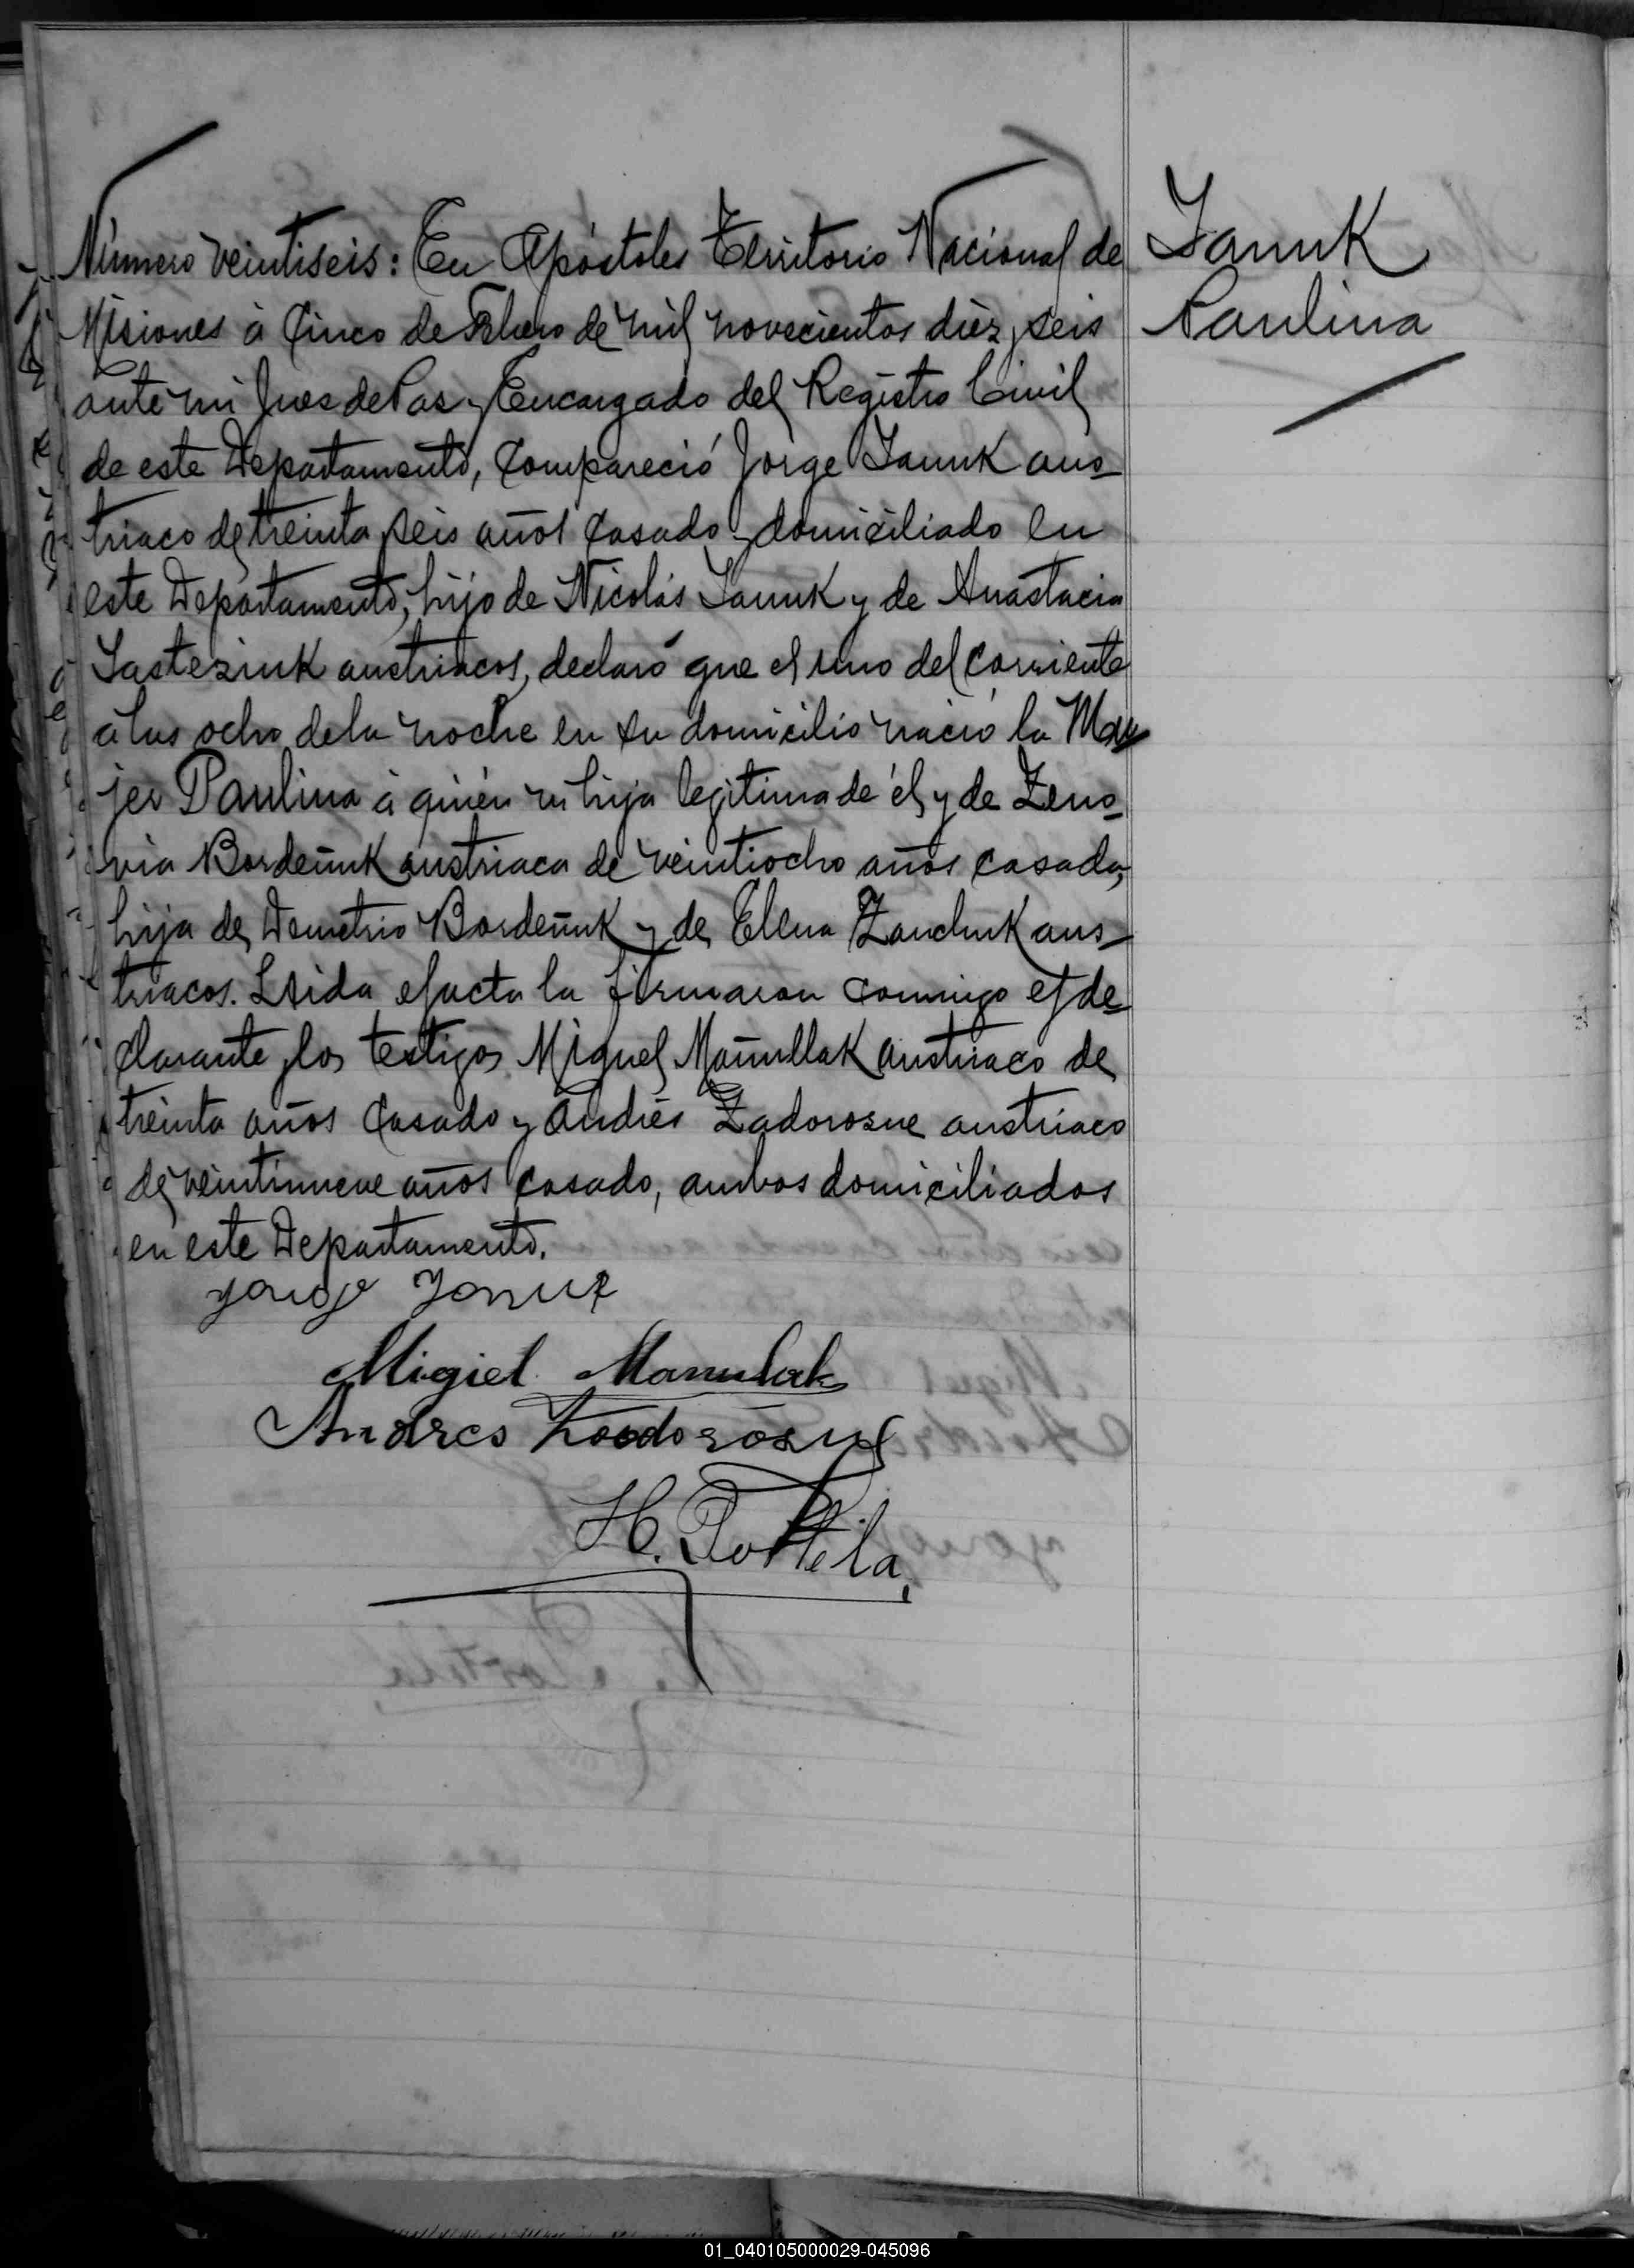 Número veintiseis: En Apóstoles Territorio Nacional de
Misiones á Cinco de Febrero de mil novecientos diez y seis
ante mi Juez de Paz y Encargado del Registro Civil
de este Departamento, Compareció Jorge Ianuk aus-
triaco de treinta y seis años Casado y domiciliado en
este Departamento, hijo de Nicolás Ianuk y de Anastacia
Iasteziuk austriacos, declaró que el uno del corriente
á las ocho de la noche en su domicilio nació la Mu
jer Paulina á quién es hija legitima de él y de Zeno-
via Bordeñuk austriaca de veintiocho años casada,
hija de Demetrio Bordeñuk y de Elena Zanchuk aus-
triacos. Leida el acta la firmaron conmigo el de-
clarante y los testigos Miguel Mañullak austriaco de
treinta años Casado y Andrés Zadorosne austriaco
de veintinueve años casado, ambos domiciliados
en este Departamento.
Jorge Januk
Migiel Manulak
Andres
H. Portela
Ianuk
Paulina
01_040105000029-045096